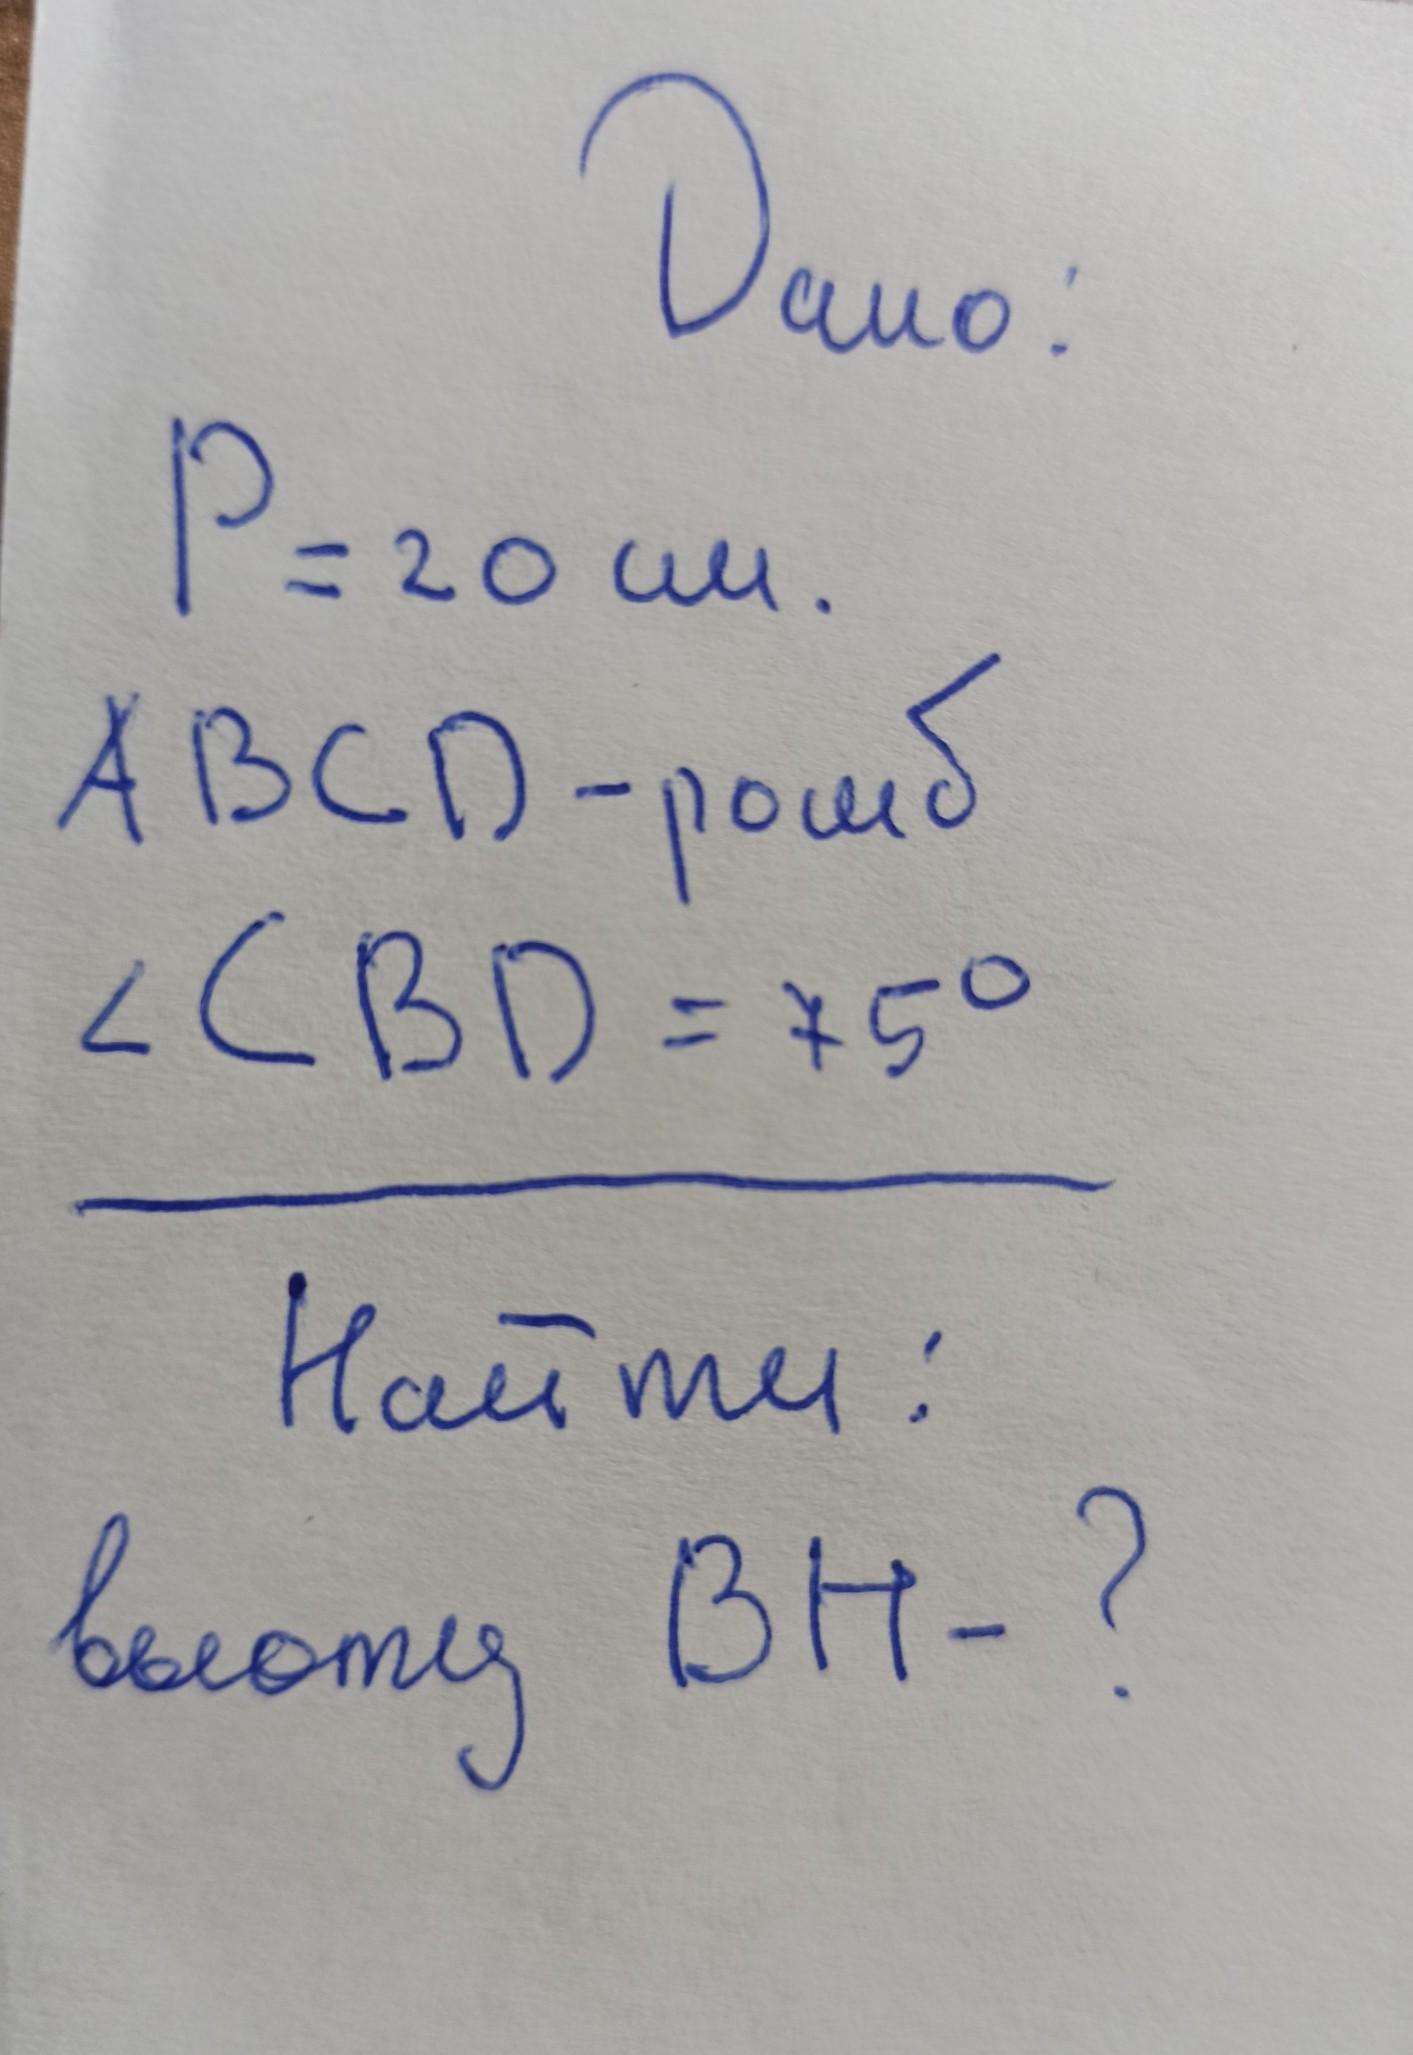 Дано:
P = 20 см.
ABCD - ромб
<CBD = 75°
Найти:
высоту BH - ?